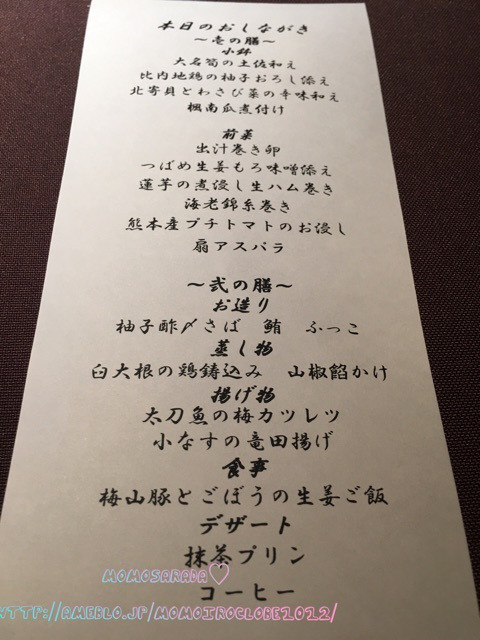 本日のおしながき
〜壱の膳〜
小鉢
大名筍の土佐和え
比内地鶏の柚子おろし添え
北寄貝とわさび菜の辛味和え
楓南瓜煮付け
前菜
出汁巻き卵
つばめ生姜もろ味噌添え
蓮芋の煮浸し生ハム巻き
海老錦糸巻き
熊本産プチトマトのお浸し
扇アスパラ
〜弐の膳〜
お造り
柚子酢〆さば 鮪 ふっこ
蒸し物
臼大根の鶏鋳込み 山椒餡かけ
揚げ物
太刀魚の梅カツレツ
小なすの竜田揚げ
食事
梅山豚とごぼうの生姜ご飯
デザート
抹茶プリン
コーヒー
MOMOSARADA♡
HTTP://AMEBLO.JP/MOMOIROCLOBE1022/